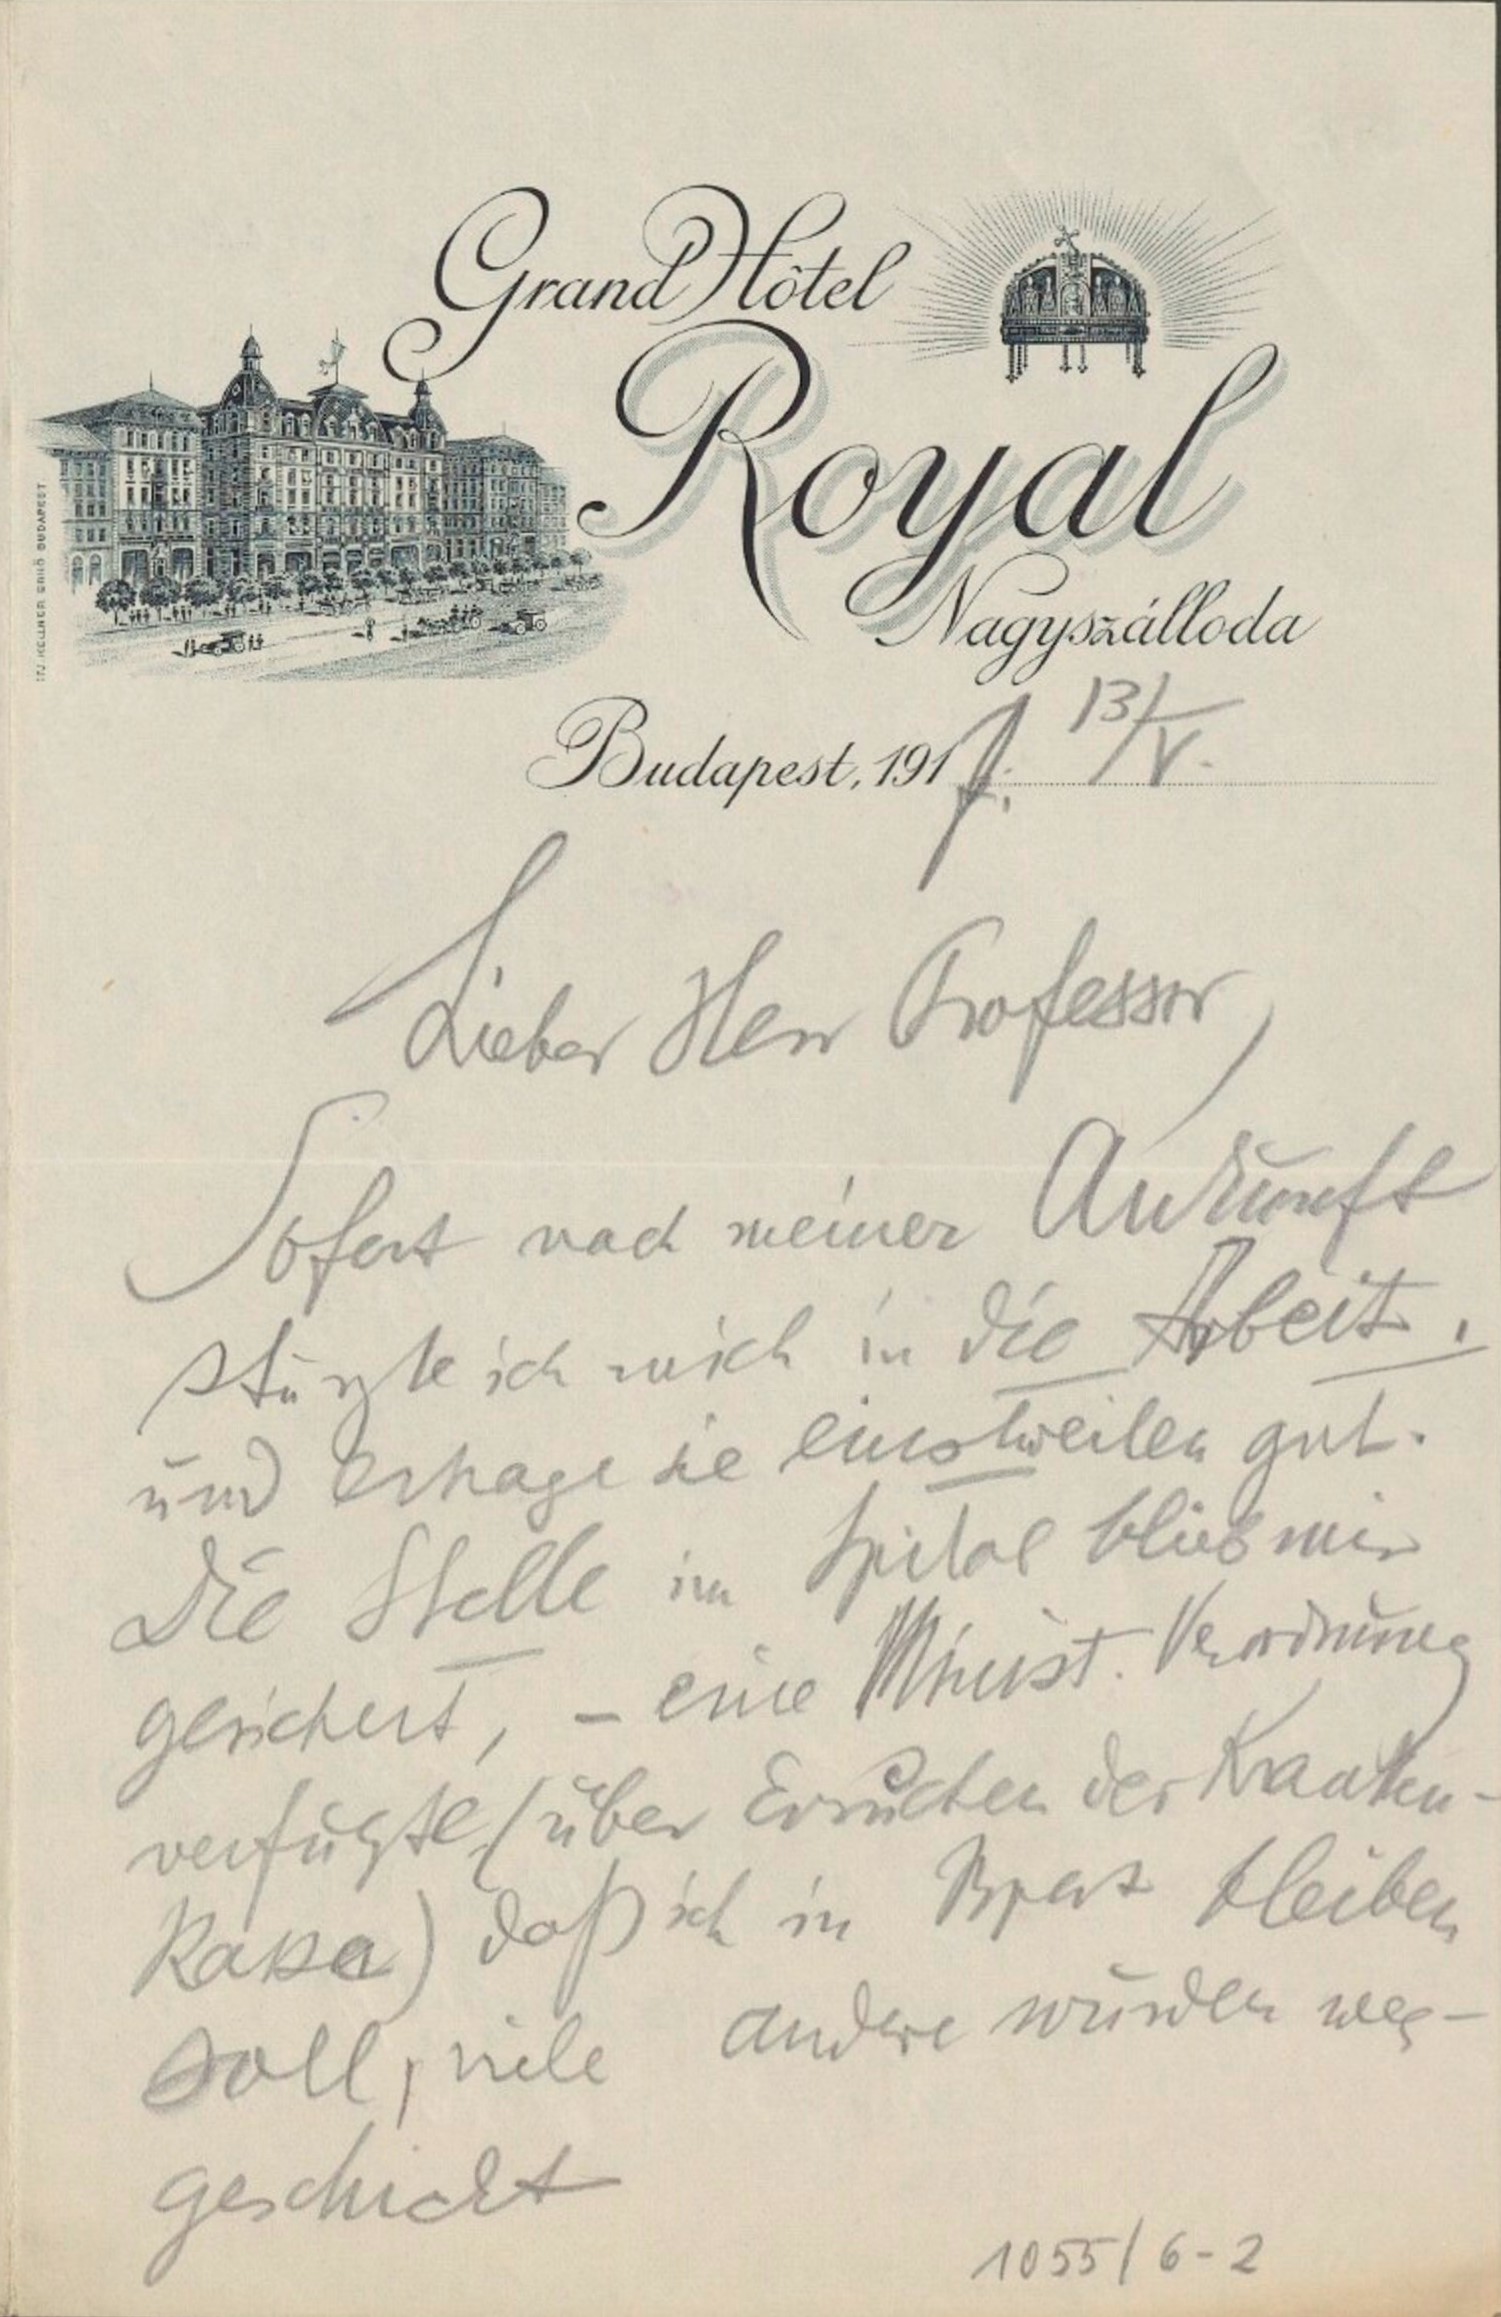 Grand Hôtel
Royal
Nagyszálloda
IFJ. KELLNER ERNŐ BUDAPEST
Budapest, 1917. 13/V.
Lieber Herr Professor,
Sofort nach meiner Ankunft
stürzte ich mich in die Arbeit,
und ertrage sie einstweilen gut.
Die Stelle im Spital blieb mir
gesichert, – eine Minist. Verordnung
verfügte (über Ersuchen der Kranken-
kassa) daß ich in Bpest bleiben
soll, viele andere wurden weg-
geschickt
1055/6-2